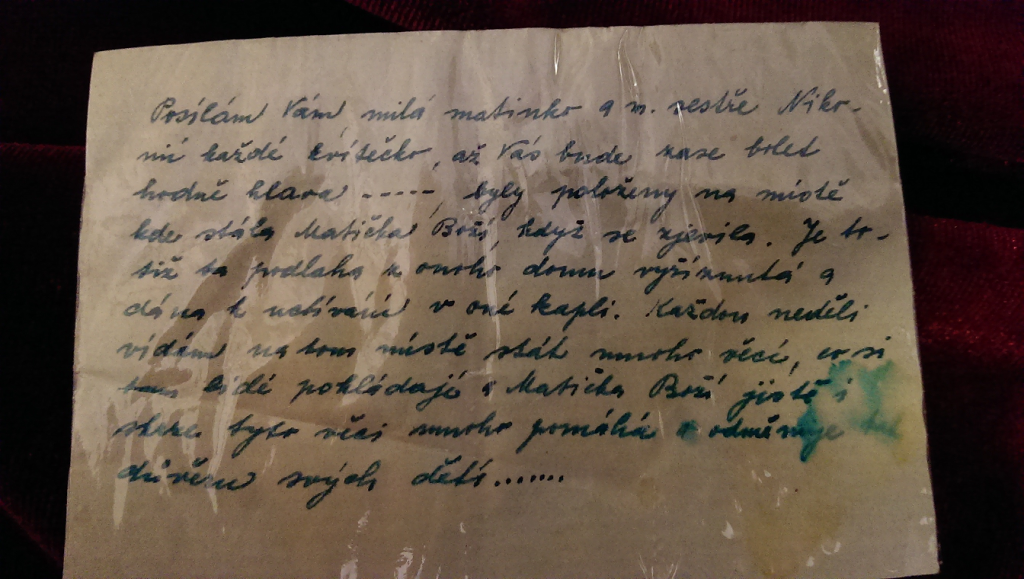 Posílám Vám milá matinko a m. sestře Niko-
mii každé kvítečko, až Vás bude zase bolet
hodně hlava -----, byly položeny na místě
kde stála Matička Boží, když se zjevila. Je to-
tiž ta podlaha z onoho domu vyříznutá a
dána k uctívání v oné kapli. Každou neděli
vídám na tom místě stát mnoho věcí, co si
tam lidé pokládají a Matička Boží jistě i
skrze tyto věci mnoho pomáhá a odměňuje tak
důvěru svých dětí.......